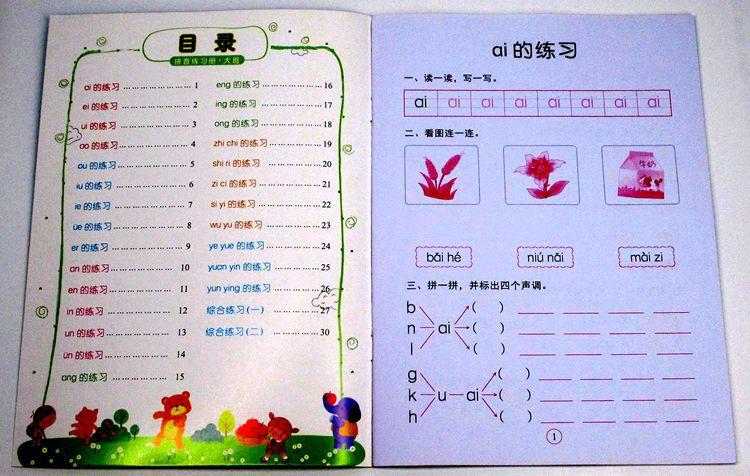 目录
拼音练习册·大班
ai 的练习 ………………… 1
ei 的练习 ………………… 2
ui 的练习 ………………… 3
ao 的练习 ………………… 4
ou 的练习 ………………… 5
iu 的练习 ………………… 6
ie 的练习 ………………… 7
üe 的练习 ………………… 8
er 的练习 ………………… 9
an 的练习 ………………… 10
en 的练习 ………………… 11
in 的练习 ………………… 12
un 的练习 ………………… 13
ün 的练习 ………………… 14
ang 的练习 ………………… 15
eng 的练习 ………………… 16
ing 的练习 ………………… 17
ong 的练习 ………………… 18
zhi chi 的练习 ……………… 19
shi ri 的练习 ……………… 20
zi ci 的练习 ……………… 21
si yi 的练习 ……………… 22
wu yu 的练习 ……………… 23
ye yue 的练习 …………… 24
yuan yin 的练习 ………… 25
yun ying 的练习 ………… 26
综合练习(一) …………… 27
综合练习(二) …………… 30
ai 的练习
一、读一读，写一写。
ai ai ai ai ai ai ai ai
二、看图连一连。
牛奶
bǎi hé niú nǎi mài zi
三、拼一拼，并标出四个声调。
b ( )
n ai ( )
l ( )
g ( )
k u ai ( )
h ( )
1